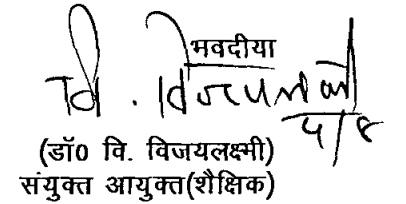 भवदीया
वि. विजयलक्ष्मी
(डॉ0 वि. विजयलक्ष्मी)
संयुक्त आयुक्त(शैक्षिक)